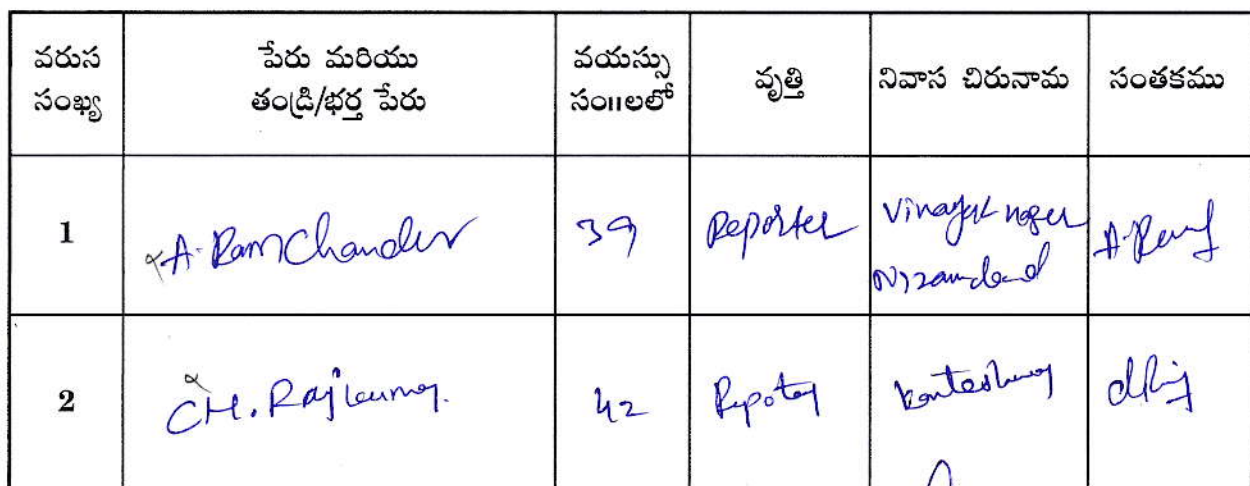 వరుస సంఖ్య పేరు మరియు తండ్రి/భర్త పేరు వయస్సు సం॥లలో వృత్తి నివాస చిరునామ సంతకము
1 A. Ram Chander 39 Reporter Vinayak nager
Nizamabad
2 CH. Raj kumar. 42